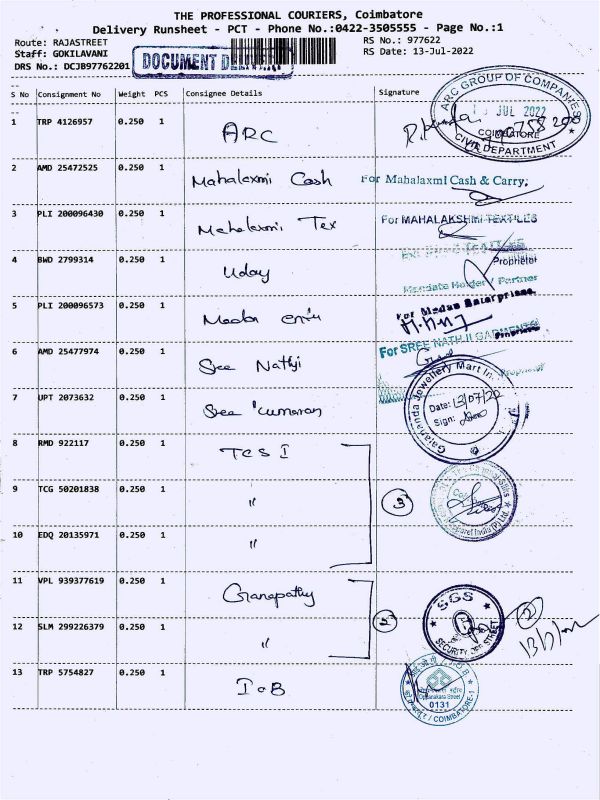 THE PROFESSIONAL COURIERS, Coimbatore
Delivery Runsheet - PCT - Phone No.:0422-3505555 - Page No.:1
Route: RAJASTREET
RS No.: 977622
Staff: GOKILAVANI
RS Date: 13-Jul-2022
DRS No.: DCJB97762201
DOCUMENT
S No Consignment No Weight PCS Consignee Details Signature
1 TRP 4126957 0.250 1 ARC
ARC GROUP OF COMPANIES
JUL 2022
COIMBATORE
CIVIL DEPARTMENT
2 AMD 25472525 0.250 1 Mahalaxmi Cash For Mahalaxmi Cash & Carry,
3 PLI 200096430 0.250 1 Mahalaxmi Tex For MAHALAKSHMI TEXTILES
Proprietor
4 BWD 2799314 0.250 1 Uday
Mandate Holder / Partner
5 PLI 200096573 0.250 1 For Madan Enterprises
6 AMD 25477974 0.250 1 Sree Nathji For SREE NATHJI GARMENTS
Proprietor
7 UPT 2073632 0.250 1 Sree Kumaran
Gajananda Jewellery Mart In
Date: 13/07/22
Sign:
8 RMD 922117 0.250 1 TCS I
9 TCG 50201838 0.250 1 " 3
Apparel India (P) Ltd
10 EDQ 20135971 0.250 1 "
11 VPL 939377619 0.250 1 Ganapathy
12 SLM 299226379 0.250 1 " 2
SGS
SECURITY
2
13 TRP 5754827 0.250 1 IOB
I O B
Oppanakara Street
0131
COIMBATORE-1